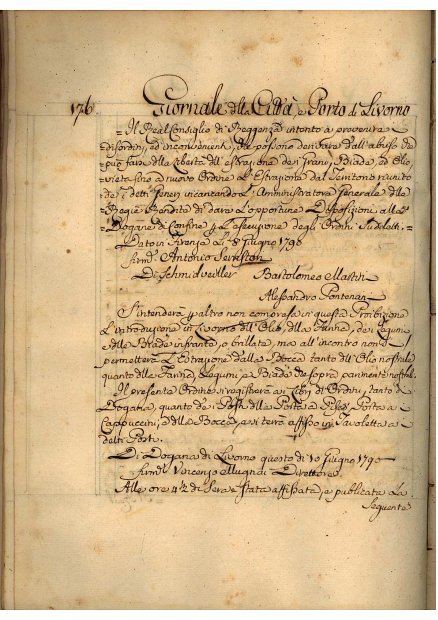 176. Giornale della Città, e Porto di Livorno
Il Real Consiglio di Reggenza intento a prevenire
disordini, ed inconvenienti, che possono derivare dall'abuso che
può farsi della libertà dell'estrazione dei Grani, Biade, ed Olio
vieta sino a nuovo Ordine l'Estrazione dal Territorio riunito
dei detti Generi incaricando l'Amministratore Generale delle
Regie Rendite di dare l'opportune Disposizioni alle
Dogane di Confine p l'esecuzione degli Ordini suddetti.
Dato in Firenze li 8 Giugno 1790
firmi Antonio Serristori
De Schmidveiller Bartolomeo Martini
Alessandro Pontenani
S'intenderà p altro non compresa in questa Proibizione
l'introduzione in Livorno dell'Olio, della Farina, dei Legumi
e delle Biade infranto, o brillate, ma all'incontro non si
permetterà l'Estrazione dalla Bocca tanto dell'Olio nostrale
quanto della Farina, Legumi, e Biade di sopra parimente nostrali.
Il presente Ordine si registrerà ai Libri di Ordini, tanto di
Dogana, quanto dei Posti della Porta a Pisa, Porta a
Cappuccini, e della Bocca, e si terrà affisso in Tavoletta a
detti Posti.
Di Dogana di Livorno questo dì 10 Giugno 1790
firmo Vincenzo Direttore
Alle ore 4½ di Sera è stata affissata, e publicata la
seguente